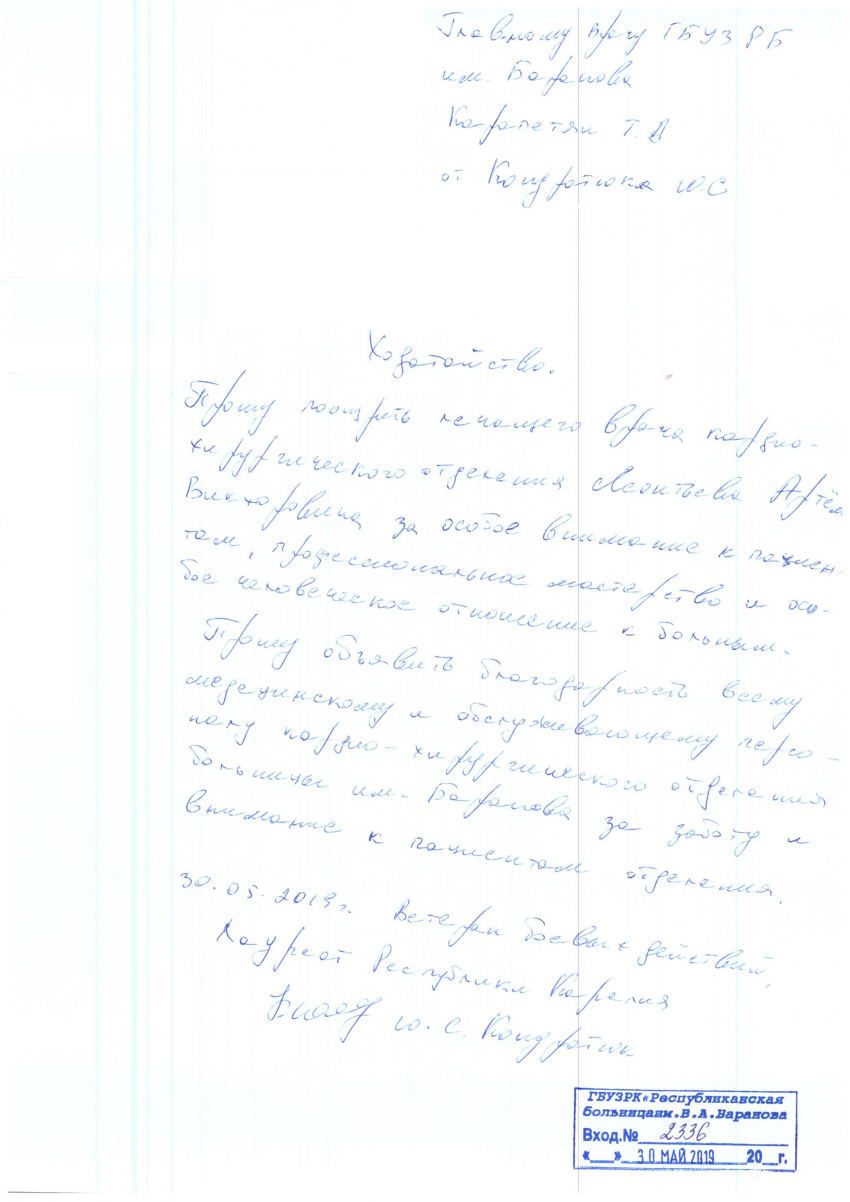 Главному врачу ГБУЗ РБ
им. Баранова
Карапетян Т.А
от Кондратюка Ю.С
Ходатайство.
Прошу поощрить лечащего врача кардио-
хирургического отделения Леонтьева Артём
Викторовича за особое внимание к пациен-
там, профессиональное мастерство и осо-
бое человеческое отношение к больным.
Прошу объявить благодарность всему
медецинскому и обслуживающему персо-
налу кардио-хирургического отделения
больницы им. Баранова за заботу и
внимание к пациентам отделения.
30.05.2019г. Ветеран боевых действий,
Лауреат Республики Карелия
Ю.С. Кондратюк
ГБУЗРК«Республиканская
больницаим.В.А.Баранова
Вход.№ 2336
«__» 30 МАЙ 2019 20__г.